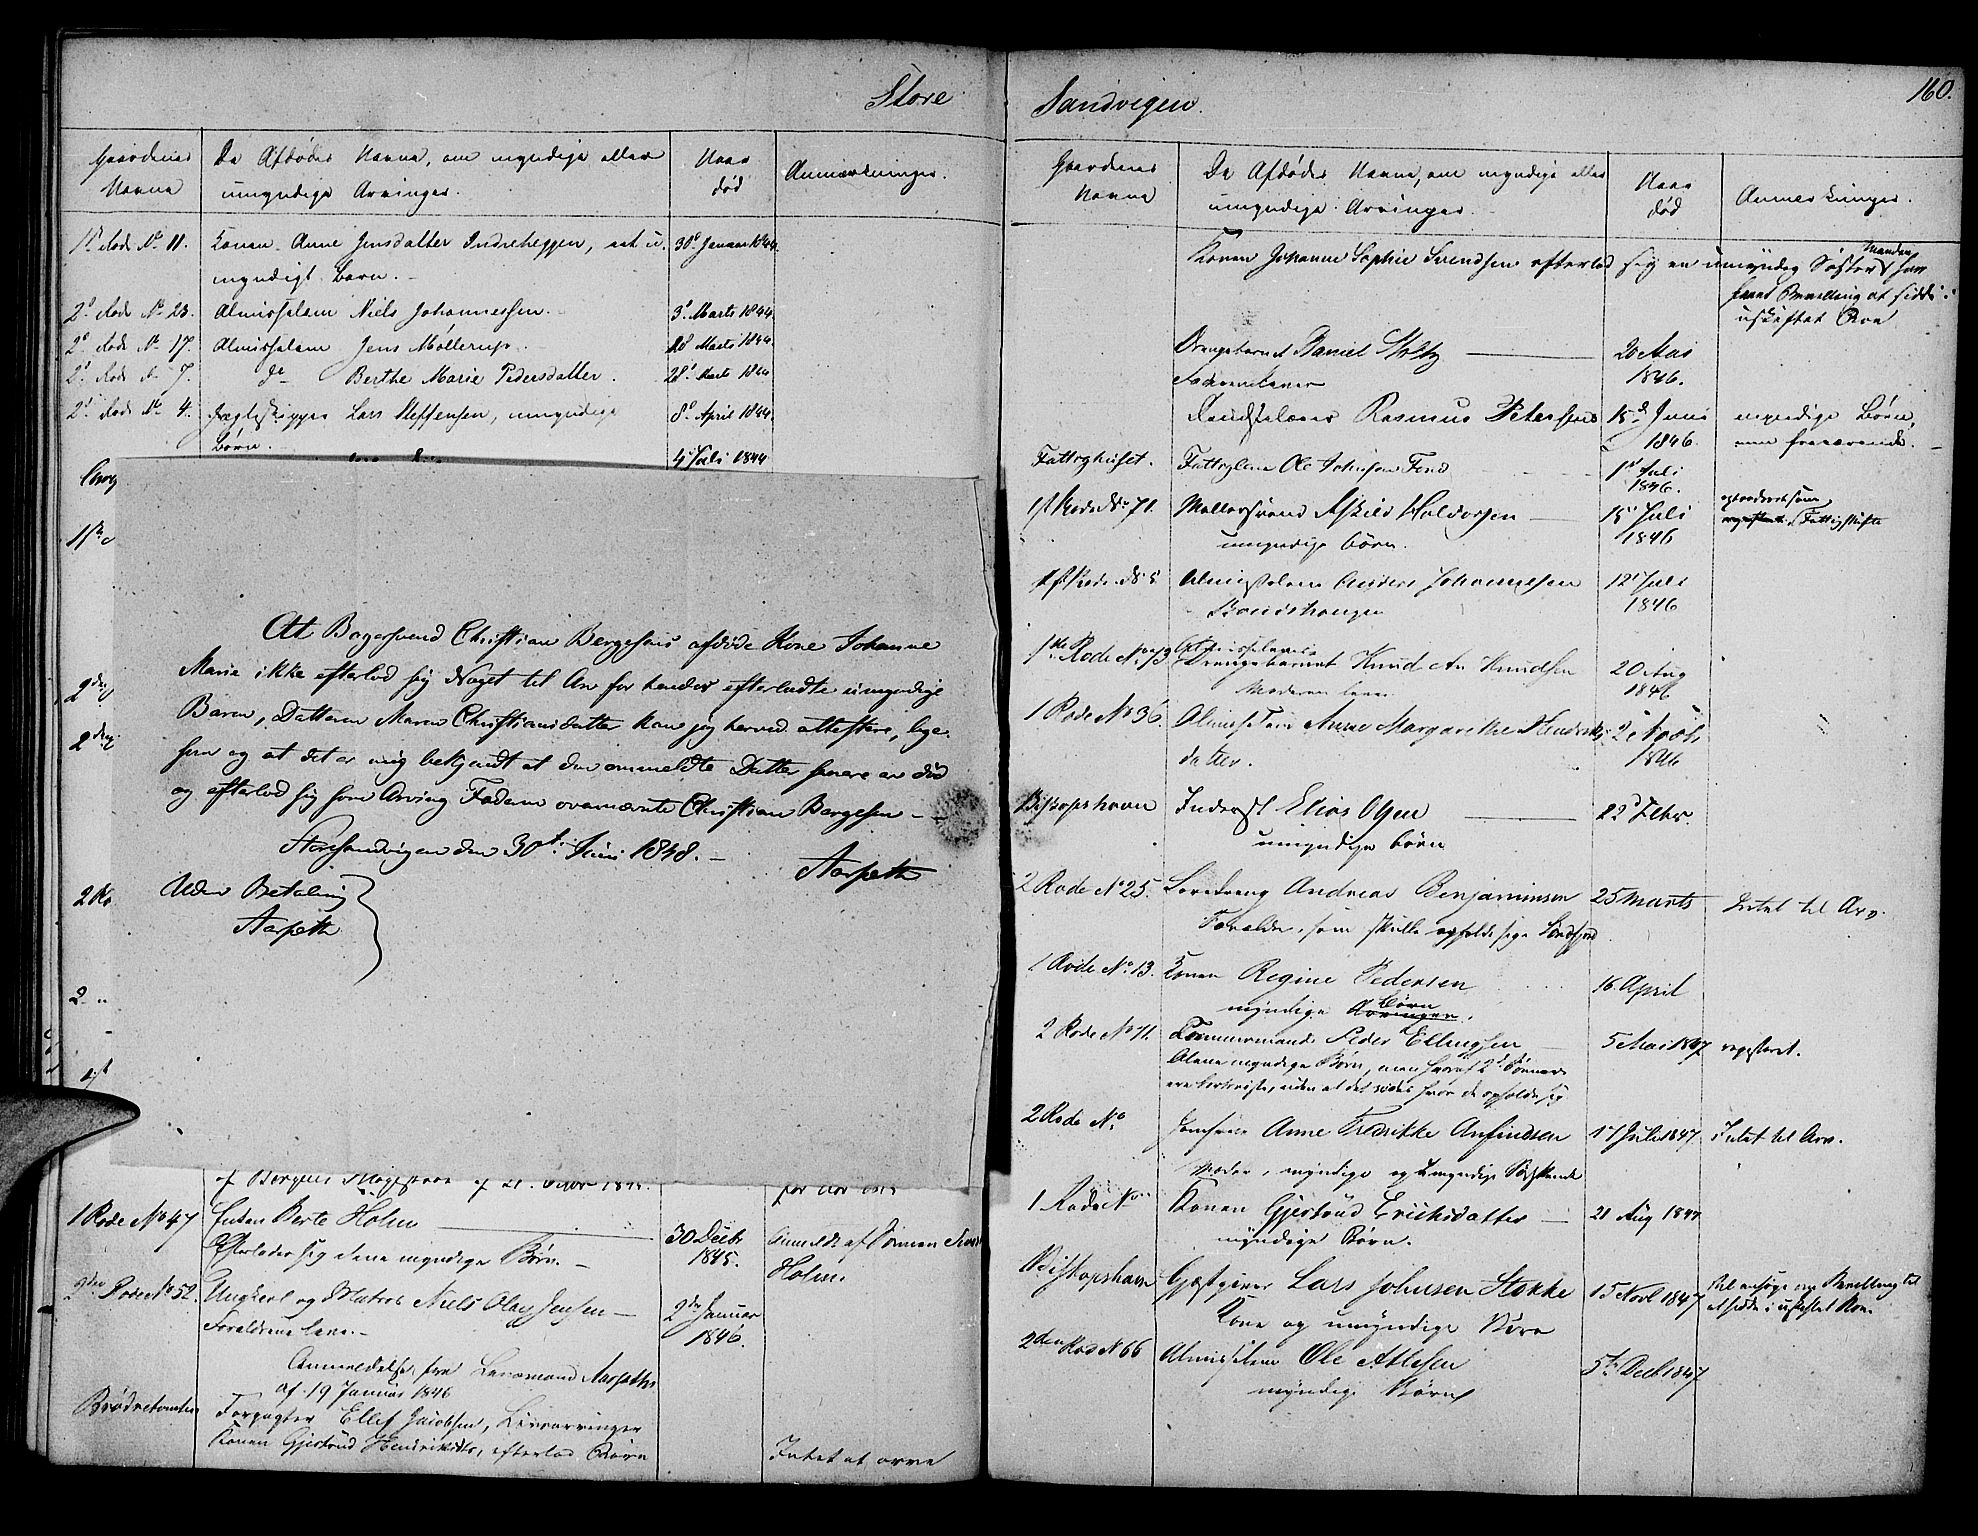 Store
Gaardenes Navne
De Afdødes Navne, om myndige eller umyndige Arvinger.
Naar død
Anmærkninger.
1ste Rode No 11. Konen Anne Jensdatter Indreheggen, et u- 30te Januar 1844.
myndigt Barn.
2d Rode No 23. Almisselem Niels Johannessen. 3d Marts 1844.
2d Rode No 17. Almisselem Jens Møllerup. 28 Marts 1844.
2d Rode No 7. do Berthe Marie Pedersdatter. 28d Marts 1844
2d Rode No 4. Lars Steffensen, umyndige 8d April 1844
Børn.
4 Juli 1844
At Bagersvend Christian Børgesens afdøde Kone Johanne
Marie ikke efterlod sig Noget til Arv for hendes efterladte umyndige
Barn, Datteren Maren Christiansdatter kan jeg herved attestere, lige-
som og at det er mig bekjendt at den ommeldte Datter senere er død
og efterlod sig som Arving Faderen ovennævnte Christian Børgesen
Storesandvigen den 30te Juni 1848.
Aarseth
Uden Betaling
Aarseth
1 Rode No 47 Enken Berte Holm 30 Decbr
1845.
Efterlader sig alene myndige Børn. Anmeldt af Sønnen
Holm.
2den Rode No 52. Ungkarl og Matros Niels Olay Jensen 2den Januar
1846.
Forældrene leve.
Anmeldelse fra Lensmand Aarseth
af 19 Januar 1846
Brødretomten Forpagter Ellef Jacobsen, Livsarvinger
Konen Gjertrud Hendriksdtr, efterlod Børn Intet at arve
Sandvigen. 160.
Gaardenes Navne
De Afdødes Navne, om myndige eller umyndige Arvinger.
Naar død
Anmerkninger.
Konen Johanne Sophie Svendsen efterlod sig en umyndig Søster Manden har
Bevilling at sidde i
uskiftet Boe
Drengebarnet Daniel Stoltz 20 Mai
1846.
Faderen lever
Rasmus Petersen 15de Juni
1846. myndige Børn,
nær fraværende.
Fattighuset. Fattiglem Ole Johnsen Fond 1st Juli
1846.
1st Rode No 71. Møllersvend Askild Haldorsen 15 Juli
1846
umyndige børn.
1st Rode No 5 Almisselem Anders Johannesen 12te Juli
1846
1ste Rode No 73 Almisselem
Drengebarnet Knud An Knudsen 20 Aug
1846
Moderen lever
1 Rode No 36. Almisselem Anne Margarethe Hendriks- 2
1846
datter.
Bishopshavn Inderst Elias Olsen 22d Febr.
umyndige børn
2 Rode No 25. Læredreng Andreas Benjaminsen 25 Marts Intet til Arv.
Forældre, som skulle opholde sig i Søndfjord
1 Rode No 13. Konen Regine Pedersen 16 April
myndige Arvinger. Børn
2 Rode No 11. Tømmermand Peder Ellingsen 5 Mai 1847 registeret.
Alene myndige Børn, men hvoraf 2de Sønner
ere bortreiste, uden at det vides hvor de opholde sig
2 Rode No Jomfrue Anne Fredrikke Anfindsen 17 Juli 1847 Intet til Arv.
Moder, myndige og umyndige Søskende
1 Rode No Konen Gjertrud Ericksdatter 21 Aug 1847
myndige Børn.
Bishopshavn Gjæstgiver Lars Johnsen Stokke 15 Novb 1847 Vil ansøge om Bevilling til
at sidde i uskiftet Boe.
Kone og umyndige Børn
2den Rod No 66 Almisselem Ole Atlesen 5te Decb 1847
myndige Børn